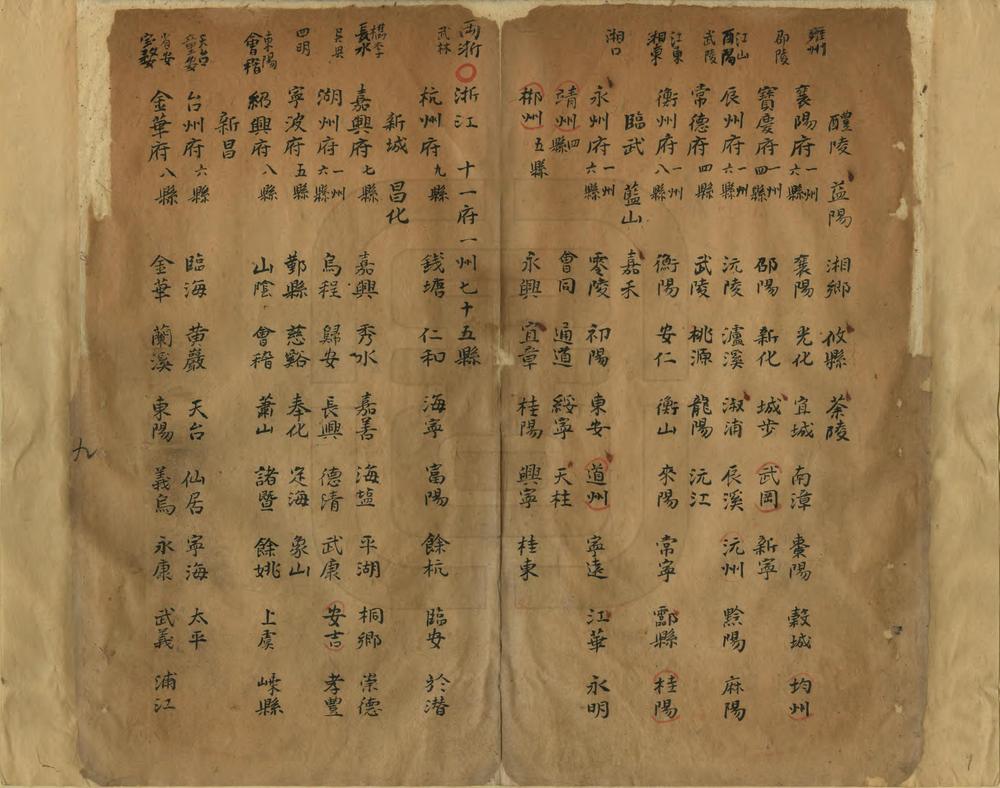 醴陵 益陽 湘鄉 攸縣 茶陵
雍州 襄陽府 一州六縣 襄陽 光化 宜城 南漳 棗陽 穀城 均州
邵陵 寶慶府 一州四縣 邵陽 新化 城步 武岡 新寧
江山 酉陽 辰州府 一州六縣 沅陵 瀘溪 溆浦 辰溪 沅州 黔陽 麻陽
武陵 常德府 四縣 武陵 桃源 龍陽 沅江
江東 湘東 衡州府 一州八縣 衡陽 安仁 衡山 來陽 常寧 酃縣 桂陽
臨武 藍山 嘉禾
湘口 永州府 一州六縣 零陵 初陽 東安 道州 寧遠 江華 永明
靖州 四縣 會同 通道 綏寧 天柱
郴州 五縣 永興 宜章 桂陽 興寧 桂東
兩浙 浙江 十一府一州七十五縣
武林 杭州府 九縣 錢塘 仁和 海寧 富陽 餘杭 臨安 於潛
新城 昌化
檇李 長水 嘉興府 七縣 嘉興 秀水 嘉善 海塩 平湖 桐鄉 崇德
吳興 湖州府 一州六縣 烏程 歸安 長興 德清 武康 安吉 孝豐
四明 寧波府 五縣 鄞縣 慈谿 奉化 定海 象山
東陽 會稽 紹興府 八縣 山陰 會稽 蕭山 諸暨 餘姚 上虞 嵊縣
新昌
天台 台州府 六縣 臨海 黃巖 天台 仙居 寧海 太平
寶婺 金華府 八縣 金華 蘭溪 東陽 義烏 永康 武義 浦江
九